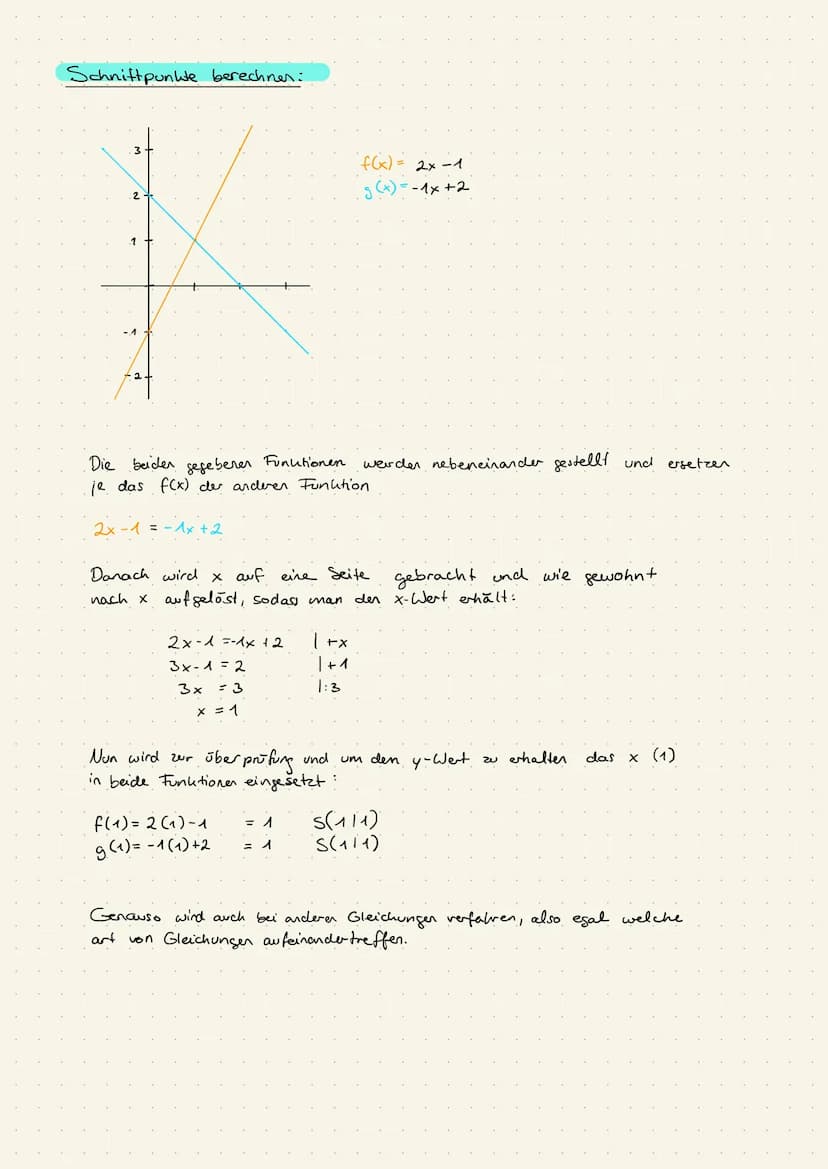 Schnittpunkte berechnen:
3
2
1
-1
-2
f(x) = 2x -1
g(x) = -1x +2
Die beiden gegebenen Funktionen werden nebeneinander gestellt und ersetzen
je das f(x) der anderen Funktion
2x -1 = -1x +2
Danach wird x auf eine Seite gebracht und wie gewohnt
nach x aufgelöst, sodass man den x-Wert erhält:
2x -1 = -1x +2 | +x
3x -1 = 2 | +1
3x = 3 | :3
x = 1
Nun wird zur überprüfung und um den y-Wert zu erhalten das x (1)
in beide Funktionen eingesetzt:
f(1) = 2(1) -1 = 1 S(1|1)
g(1) = -1(1) +2 = 1 S(1|1)
Genauso wird auch bei anderen Gleichungen verfahren, also egal welche
art von Gleichungen aufeinandertreffen.